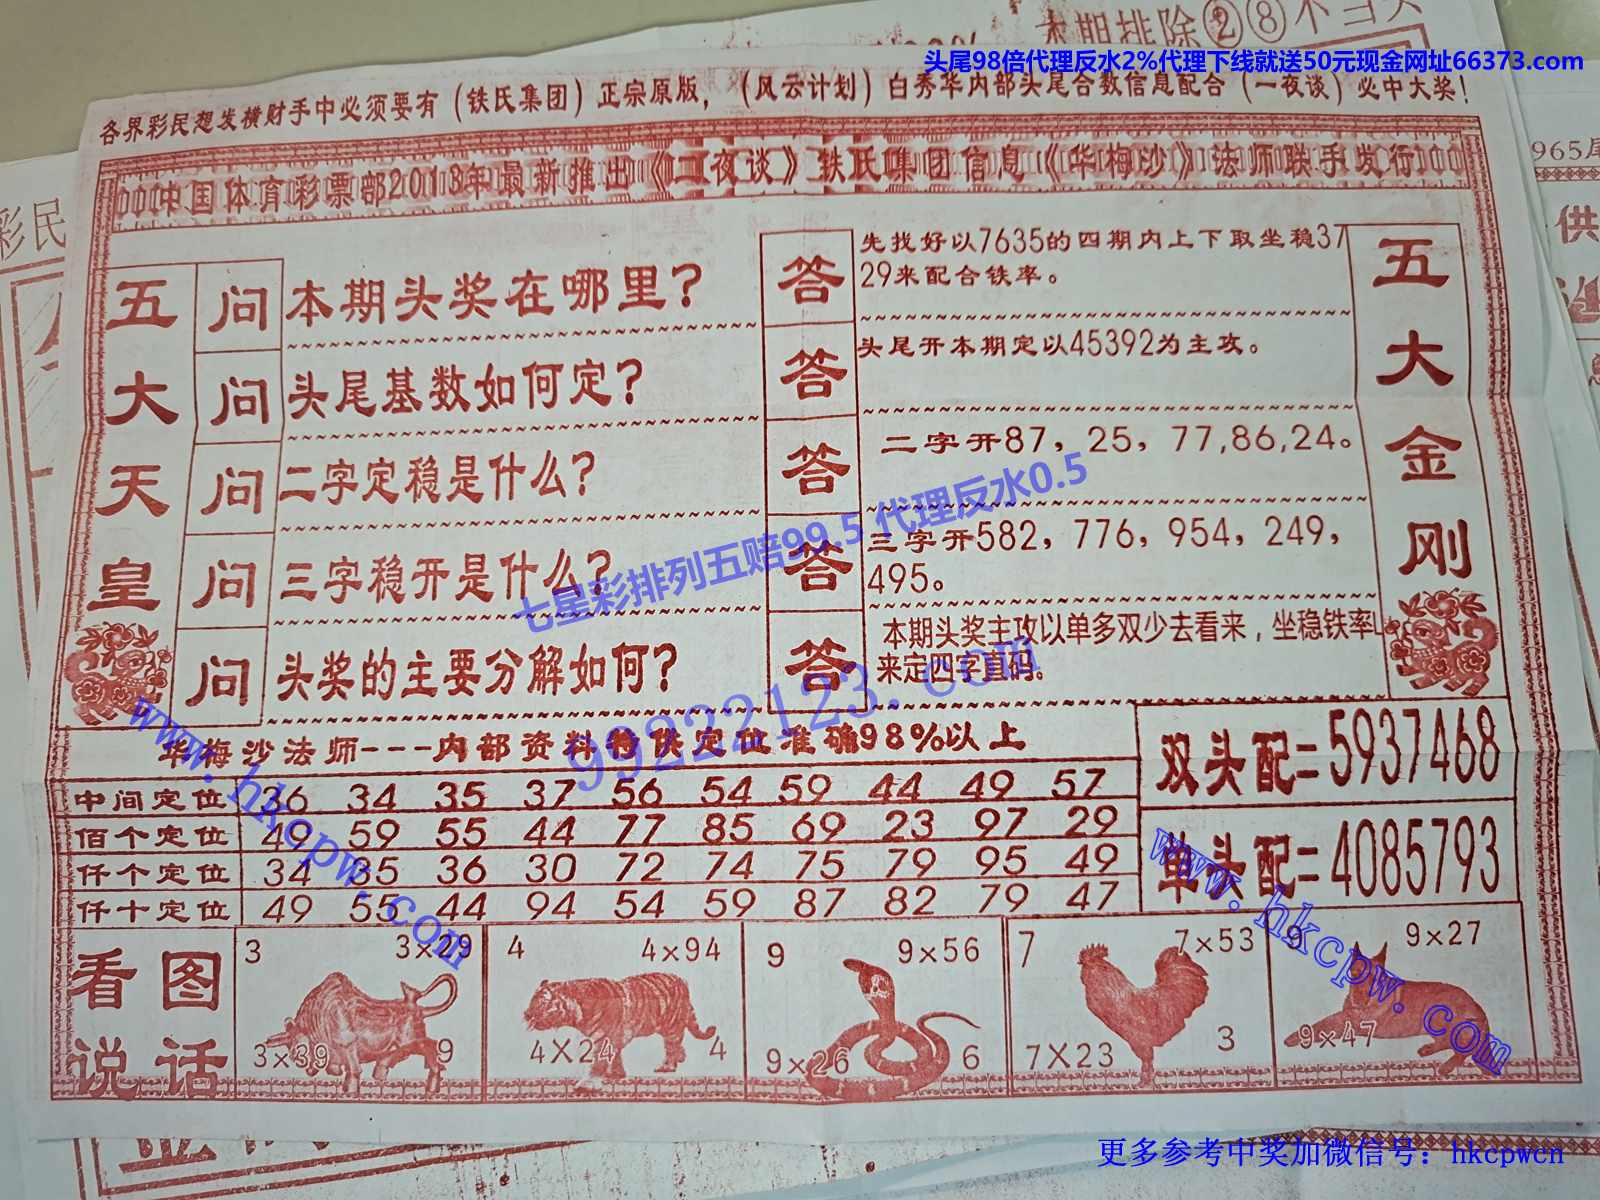 本期排除②⑧不当头
头尾98倍代理反水2%代理下线就送50元现金网址66373.com
各界彩民想发横财手中必须要有（铁氏集团）正宗原版，（风云计划）白秀华内部头尾合数信息配合（一夜谈）必中大奖！
中国体育彩票部2013年最新推出《二夜谈》铁氏集团信息《华梅沙》法师联手发行
965尾
彩民
供
五大天皇
问 本期头奖在哪里？
答 先找好以7635的四期内上下取坐稳37
29来配合铁率。
问 头尾基数如何定？
答 头尾开本期定以45392为主攻。
问 二字定稳是什么？
答 二字开87，25，77,86,24。
问 三字稳开是什么？
答 三字开582，776，954，249，
495。
问 头奖的主要分解如何？
答 本期头奖主攻以单多双少去看来，坐稳铁率
来定四字直码。
五大金刚
七星彩排列五赔99.5 代理反水0.5
99222123.com
www.hkcpw.com
www.hkcpw.com
华梅沙法师---内部资料特供定位准确98%以上
中间定位 36 34 35 37 56 54 59 44 49 57
佰个定位 49 59 55 44 77 85 69 23 97 29
仟个定位 34 35 36 30 72 74 75 79 95 49
仟十定位 49 55 44 94 54 59 87 82 79 47
双头配=5937468
单头配=4085793
看图说话
3 3×29
3×39 9
4 4×94
4×24 4
9 9×56
9×26 6
7 7×53
7×23 3
9 9×27
9×47
更多参考中奖加微信号：hkcpwcn